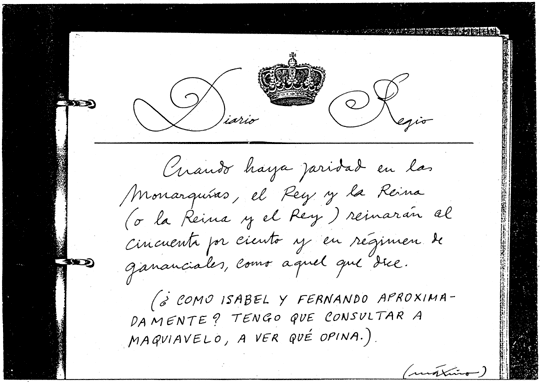 Diario Regio
Cuando haya paridad en las
Monarquías, el Rey y la Reina
(o la Reina y el Rey) reinarán al
cincuenta por ciento y en régimen de
gananciales, como aquel que dice.
(¿COMO ISABEL Y FERNANDO APROXIMA-
DAMENTE? TENGO QUE CONSULTAR A
MAQUIAVELO, A VER QUÉ OPINA.)
(máximo)